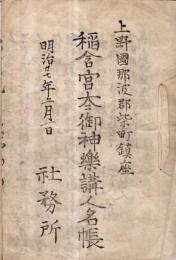 上野國那波郡柴町鎮座
稲含宮太々御神樂講人名帳
明治廿七年二月一日
社務所